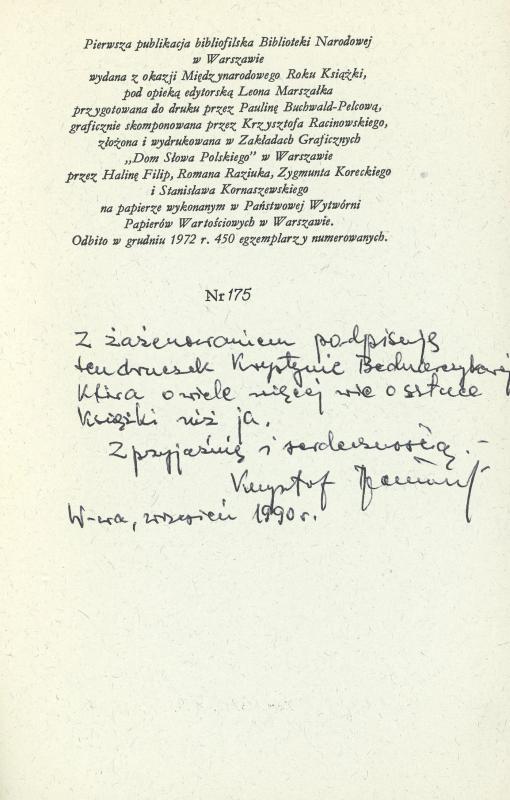 Pierwsza publikacja bibliofilska Biblioteki Narodowej
w Warszawie
wydana z okazji Międzynarodowego Roku Książki,
pod opieką edytorską Leona Marszałka
przygotowana do druku przez Paulinę Buchwald-Pelcową,
graficznie skomponowana przez Krzysztofa Racinowskiego,
złożona i wydrukowana w Zakładach Graficznych
„Dom Słowa Polskiego” w Warszawie
przez Halinę Filip, Romana Raziuka, Zygmunta Koreckiego
i Stanisława Kornaszewskiego
na papierze wykonanym w Państwowej Wytwórni
Papierów Wartościowych w Warszawie.
Odbito w grudniu 1972 r. 450 egzemplarzy numerowanych.
Nr 175
Z zażenowaniem podpisuję
ten druczek Krystynie Bednarczykowej
która o wiele więcej wie o sztuce
książki niż ja.
Z przyjaźnią i serdecznością. –
Krzysztof
W-wa, wrzesień 1990 r.